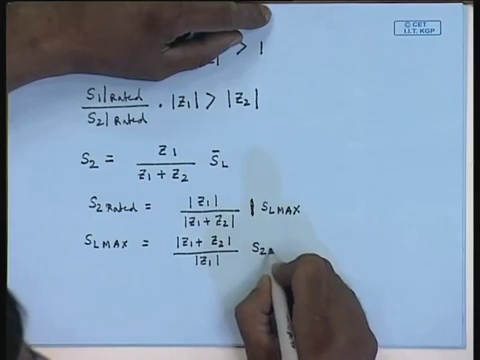 © CET
I.I.T. KGP
> 1
S1|Rated / S2|Rated · |Z1| > |Z2|
S2 = Z1 / (Z1 + Z2) S̄L
S2 Rated = |Z1| / |Z1 + Z2| | SLMAX
SLMAX = |Z1 + Z2| / |Z1| S2